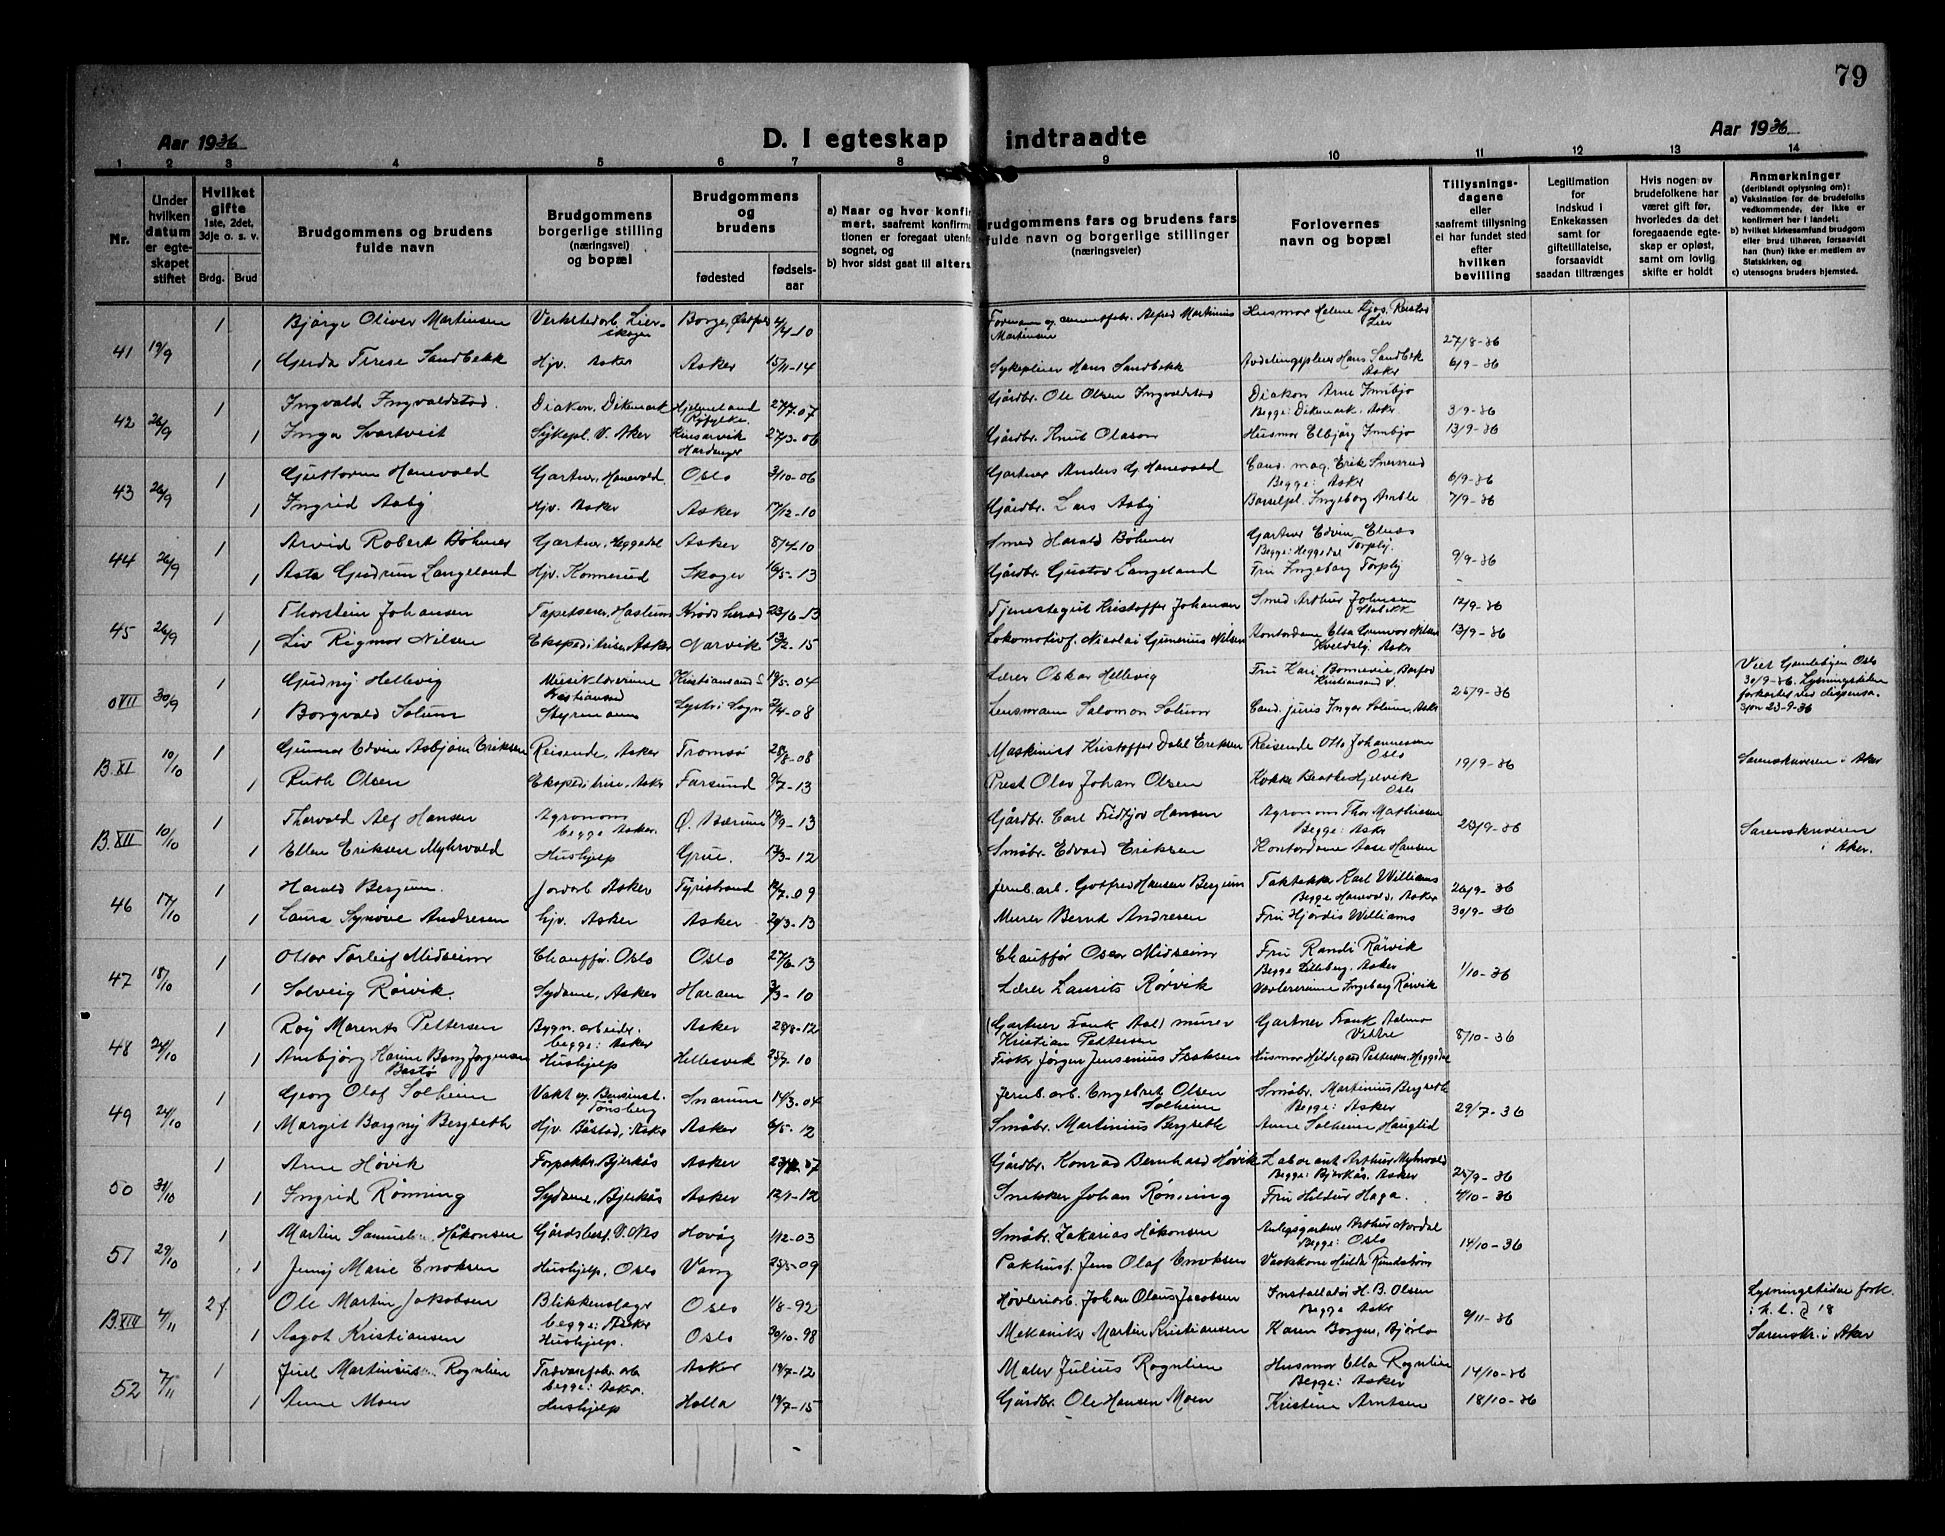 79
Aar 1936
D. I egteskap indtraadte
Aar 1936
1 2 3 4 5 6 7 8 9 10 11 12 13 14
Nr.
Under hvilken datum er egteskapet stiftet
Hvilket gifte 1ste, 2det, 3dje o. s. v.
Brdg. Brud
Brudgommens og brudens fulde navn
Brudgommens borgerlige stilling (næringsvei) og bopæl
Brudgommens og brudens
fødested
fødselsaar
a) Naar og hvor konfirmert, saafremt konfirmationen er foregaat utenfor sognet, og
b) hvor sidst gaat til alters
Brudgommens fars og brudens fars fulde navn og borgerlige stillinger (næringsveier)
Forlovernes navn og bopæl
Tillysningsdagene eller saafremt tillysning ei har fundet sted efter hvilken bevilling
Legitimation for indskud i Enkekassen samt for giftetillatelse, forsaavidt saadan tiltrænges
Hvis nogen av brudefolkene har været gift før, hvorledes da det foregaaende egteskap er opløst, samt om lovlig skifte er holdt
Anmerkninger (deriblandt oplysning om):
a) Vaksination for de brudefolks vedkommende, der ikke er konfirmert her i landet;
b) hvilket kirkesamfund brudgom eller brud tilhører, forsaavidt han (hun) ikke er medlem av Statskirken, og
c) utensogns bruders hjemsted.
41 19/9 1 Bjørge Oliver Martinsen Verkstedarb. Lierskogen Borge, Østfold 4/4-10 Formann og cementfabr. Alfred Martinius Martinsen Husmor Helene Lier 27/8-36
1 Gerda Terese Sandbekk Hjv. Asker Asker 15/11-14 Sykepleier Hans Sandbekk Avdelingspleier Hans Sandbek Asker 6/9-36
42 26/9 1 Ingvald Ingvaldstad Diakon, Dikemark Hjelmeland Ryfylke 27/7-07 Gårdbr. Ole Olsen Ingvaldstad Diakon Arne Innbjo Begge: Dikemark, Asker 3/9-36
1 Inga Svartveit Sykepl. V. Aker Kinsarvik Hardanger 27/3-06 Gårdbr. Knut Olason Husmor Elbjørg Innbjo 13/9-36
43 26/9 1 Guttorm Hanevold Gartner, Hanevold Oslo 3/10-06 Gartner Anders G. Hanevold Cand. mag. Erik Begge: Asker 6/9-36
1 Ingrid Aaby Hjv. Asker Asker 17/12-10 Gårdbr. Lars Aaby Barselpl. Ingeborg Amble 7/9-36
44 26/9 1 Arvid Robert Bøhmer Gartner, Heggedal Asker 8/4-10 Smed Harald Bøhmer Gartner Edvin Torpby Begge: Heggedal 9/9-36
1 Asta Gudrun Langeland Hjv. Konnerud Skoger 16/5-13 Gårdbr. Gustav Langeland Fru Ingeborg Torpby
45 26/9 1 Thorstein Johansen Tapetserer, Haslum Krødsherad 23/6-13 Tjenestegut Kristoffer Johansen Smed Arthur Johnsen 12/9-36
1 Liv Rigmor Nilsen Ekspeditrise, Asker Narvik 13/2-15 Lokomotivf. Nicolai Gunerius Nilsen Kontordame Elsa Gunvor Nilsen Asker 13/9-36
0VII 30/9 Gudny Hellevig Kristiansand Kristiansand S 19/5-04 Lærer Oskar Hellevig Fru Kari Bonnevie, Kristiansand S. 25/9-36 Viet Gamlebyen Oslo 30/9-36. Lysningstiden forkortet ved dispensasjon 23-9-36
1 Borgvald Solum Styrmann Lyster i Sogn 2/4-08 Lensmann Salomon Solum Cand. juris Ingar Solum, Asker
B.XI 10/10 1 Gunnar Edvin Asbjørn Eriksen Reisende, Asker Tromsø 28/8-08 Maskinist Kristoffer Dahl Eriksen Reisende Otto Johannessen Oslo 19/9-36 Sorenskriveren i Aker
1 Ruth Olsen Ekspeditrise, Asker Farsund 9/7-13 Prest Olav Johan Olsen Kokke Beathe Hjelvik Oslo
B.XII 10/10 1 Thorvald Alf Hansen Agronom begge Asker. Ø. Bærum 19/9-13 Gårdbr. Carl Fridtjov Hansen Agronom Thor Mathiesen Begge: Asker 23/9-36 Sorenskriveren i Aker.
1 Ellen Eriksen Myhrvold Hushjelp Grue. 13/3-12 Småbr. Edvard Eriksen Kontordame Aase Hansen
46 17/10 1 Harald Bergum Jordarb. Asker Tyristrand 12/7-09 Jernb.arb. Gotfred Hansen Bergum Taktekker Karl Williams Begge Hanevold, Asker 26/9-36
1 Laura Synøve Andresen Hjv. Asker Asker 20/3-13 Murer Bernt Andresen Fru Hjørdis Williams 30/9-36
47 18/10 1 Otto Torleif Midseim Chauffør, Oslo Oslo 27/6-13 Chauffør Oscar Midseim Fru Randi Rørvik Begge Lilleberg, Asker 1/10-36
1 Solveig Rørvik. Sydame, Asker Haram 3/3-10 Lærer Laurits Rørvik Ingeborg Rørvik
48 24/10 1 Roy Marents Pettersen Bygn.arbeider begge: Asker Asker 28/8-12 (Gartner Frank Aal) murer Kristian Pettersen Gartner Frank Vettre 8/10-36
1 Arnbjørg Karine Bang Jørgensen Bastø Hushjelp Hellesvik 25/7-10 Fisker Jørgen Jensenius Isaksen Husmor Hildegard Pettersen, Heggedal
49 24/10 1 Georg Olaf Solheim Vakt og Tønsberg Snarum 14/3-04 Jernb.arb. Engebret Olsen Solheim Småbr. Martinius Bergseth Begge: Asker 29/7-36
1 Margit Borgny Bergseth Hjv. Båstad, Asker Asker 6/5-12 Småbr. Martinius Bergseth Anne Solheim Hauglid
50 31/10 1 Arne Høvik Forpakter, Bjerkås Asker Gårdbr. Konrad Bernhard Høvik Laborant Arthur Myhrvold Begge: Bjerkås, Asker 25/9-36
1 Ingrid Rønning Sydame, Bjerkås Asker 12/1-12 Snekker Johan Rønning Fru Hildur Haga. 4/10-36
51 29/10 1 Martin Samuel Håkonsen Gårdsbest. V. Nes Hovåg 1/12-03 Småbr. Zakarias Håkonsen Anlegsgartner Arthur Nordal Begge: Oslo 14/10-36
1 Jenny Marie Enoksen Hushjelp, Oslo Vang 25/5-09 Pakhusf. Jens Olaf Enoksen Vaskekone Hilda Rundstrøm
B.XIII 4/11 2 f. Ole Martin Jakobsen Blikkenslager begge: Asker Oslo 1/8-92 Høvleriarb. Johan Olaus Jacobsen Installatør H. B. Olsen Begge Asker 9/11-36 Lysningstiden fork. i h. t. § 18
1 Aagot Kristiansen Hushjelp. Oslo 30/10-98 Mekaniker Martin Kristiansen Karen Borger, Sorenskr. i Aker
52 7/11 1 Juel Martinius Rognlien Trævarefabr. arb begge: Asker. Asker 14/7-12 Maler Julius Rognlien Husmor Ella Rognlien Begge: Asker 14/10-36
1 Anne Moen Hushjelp Holla 19/7-15 Gårdbr. Ole Hansen Moen Kristine Arntsen 18/10-36